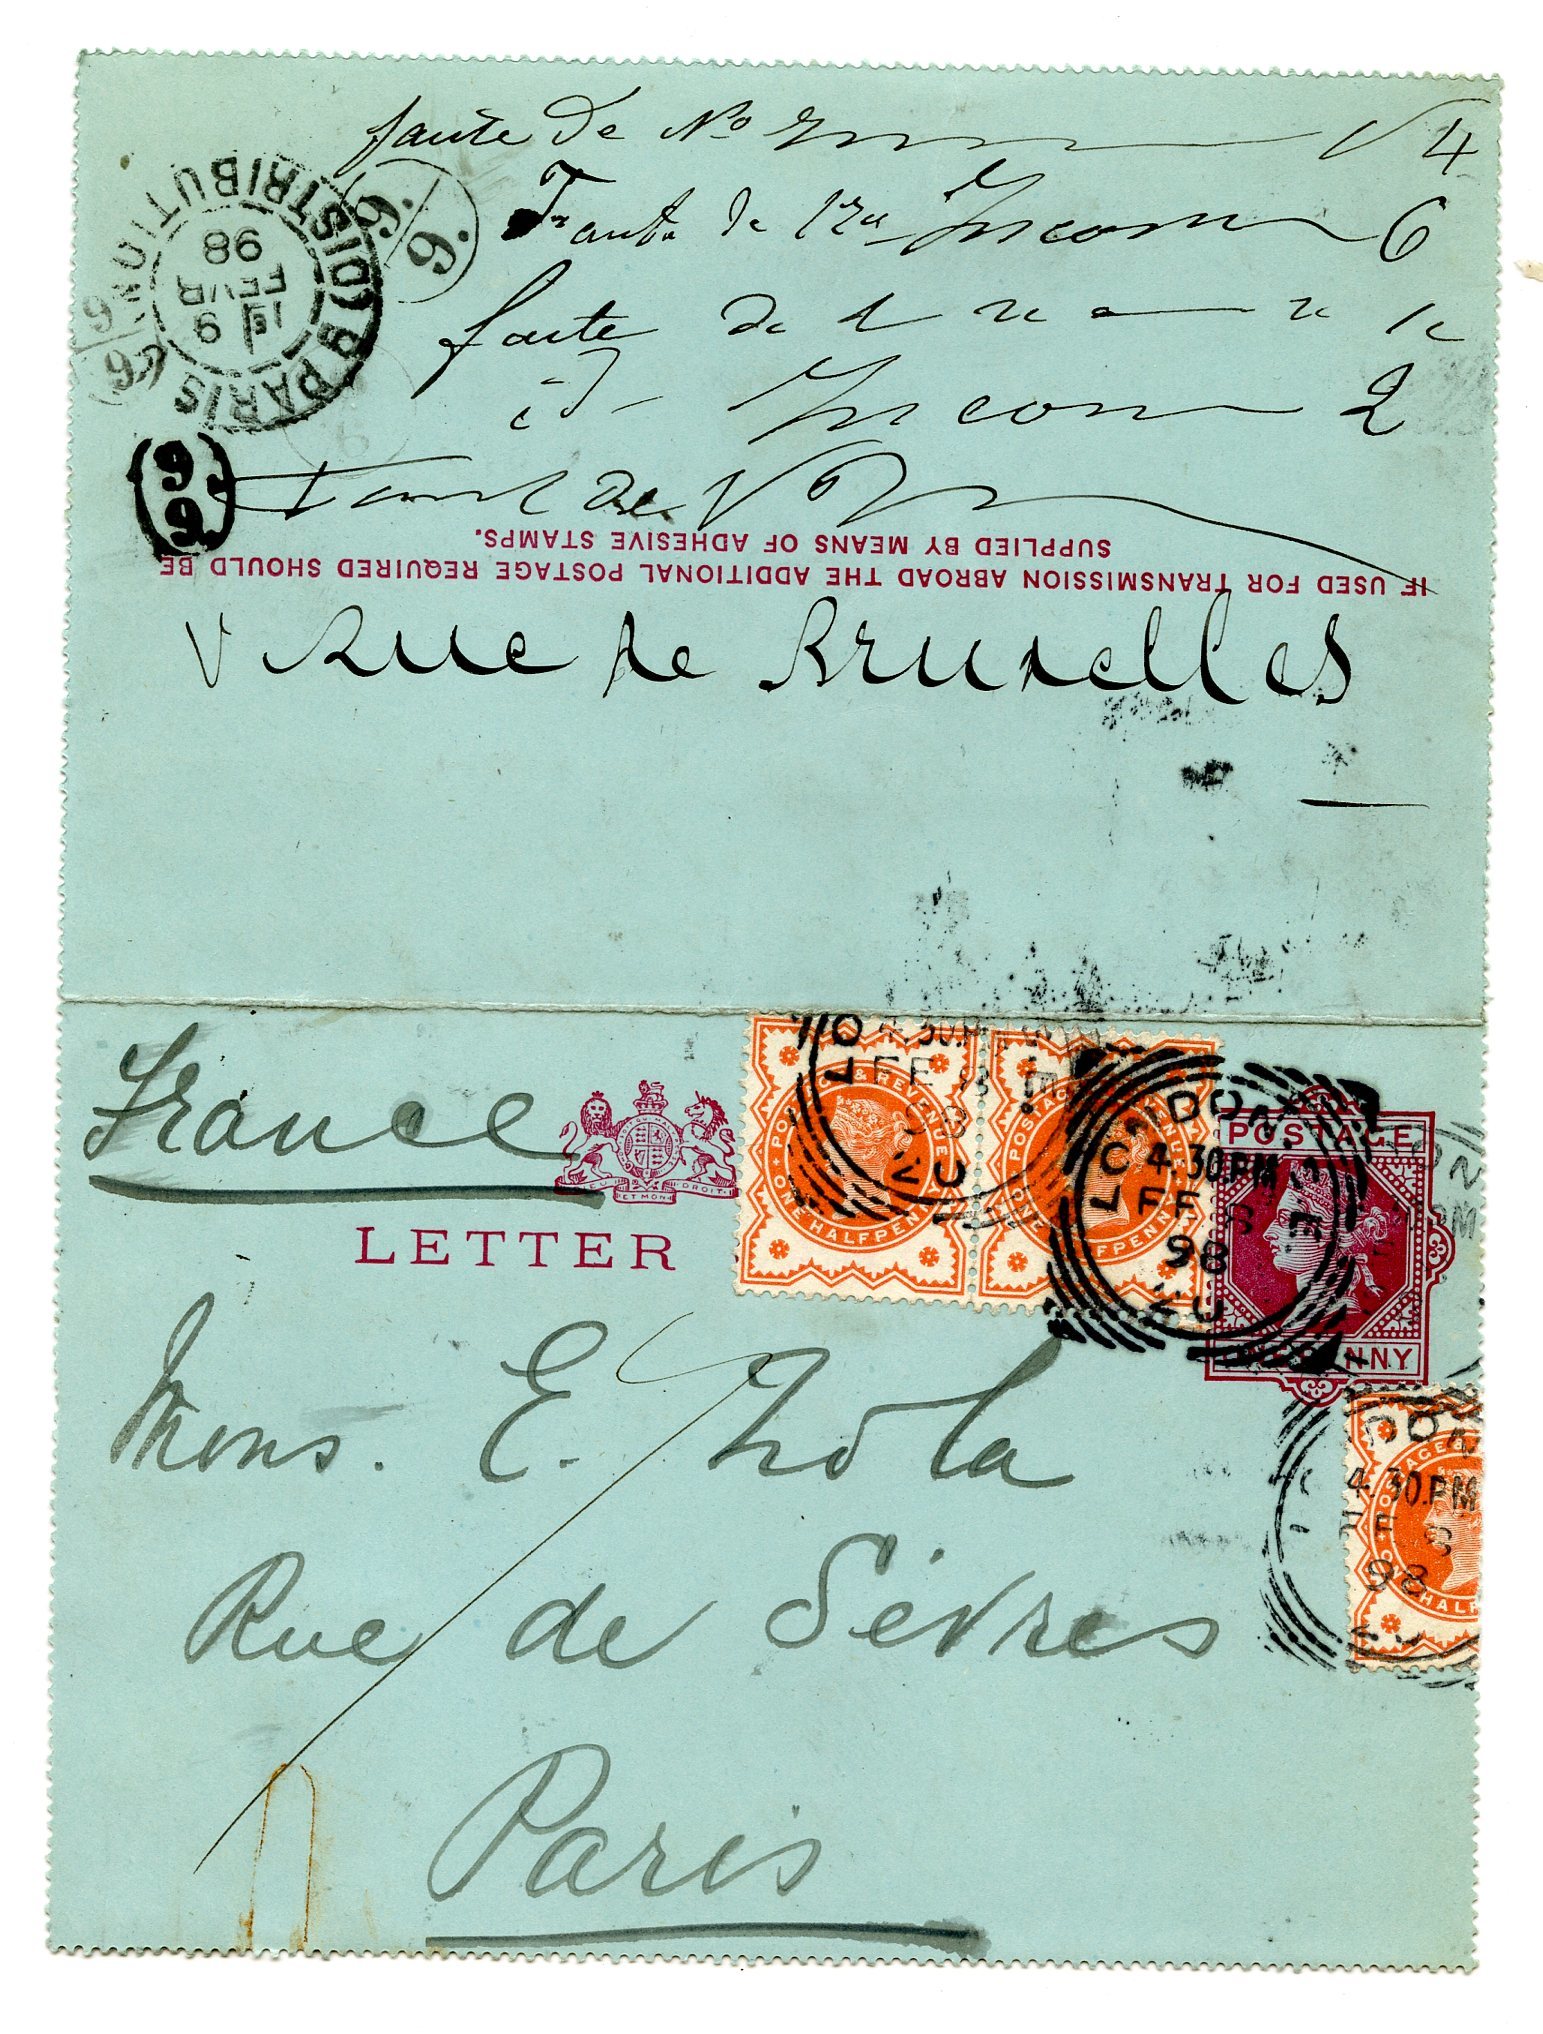 faute de No
4
Faute de 1re Inconnu 6
faute de
id Inconnu 2
PARIS
DISTRIBUTION
19
FEVR
98
6.
6.
9
9
IF USED FOR TRANSMISSION ABROAD THE ADDITIONAL POSTAGE REQUIRED SHOULD BE
SUPPLIED BY MEANS OF ADHESIVE STAMPS.
V Rue de Bruxelles
France
ET MON DROIT
LETTER
POSTAGE & REVENUE
ONE HALFPENNY
LONDON. E
4.30.PM
FE 8
98
POSTAGE
ONE PENNY
4.30.PM
98
Mons. E. Zola
Rue de Sèvres
Paris